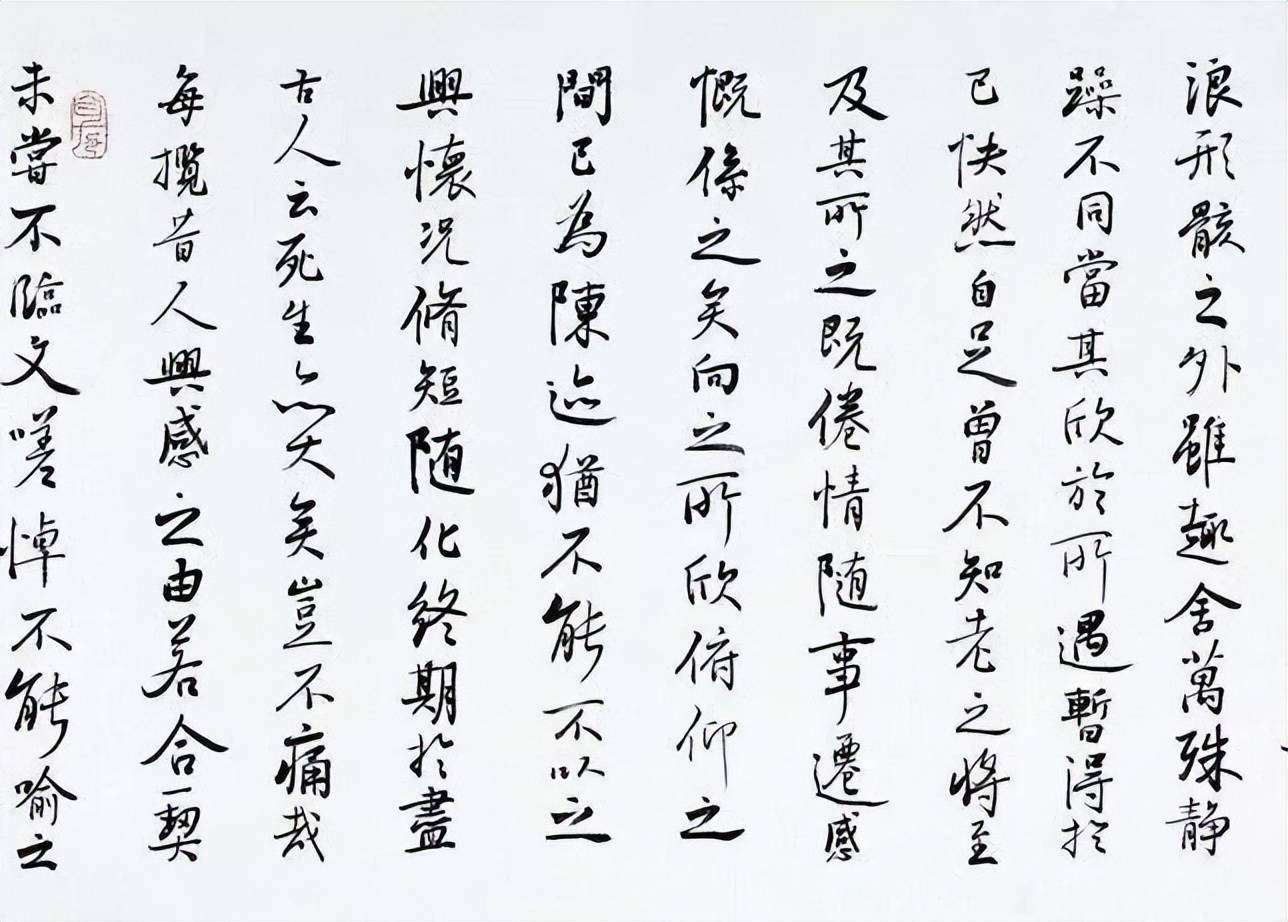 浪形骸之外雖趣舍萬殊静
躁不同當其欣於所遇暫得於
己怏然自足曾不知老之將至
及其所之既倦情随事遷感
慨係之矣向之所欣俯仰之
間已為陳迹猶不能不以之
興懷况脩短随化終期於盡
古人云死生亦大矣豈不痛哉
每攬昔人興感之由若合一契
未嘗不臨文嗟悼不能喻之